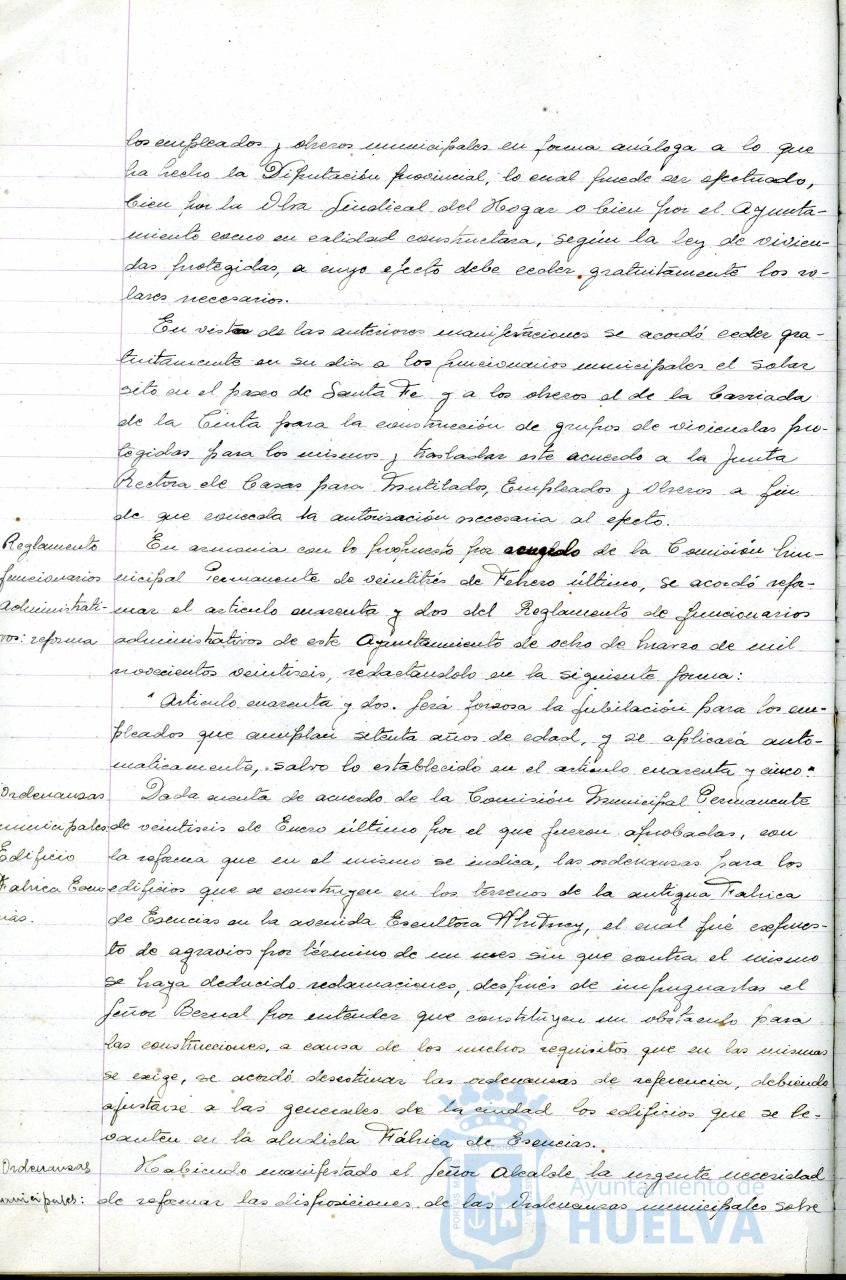 los empleados y obreros municipales en forma análoga a lo que
ha hecho la Diputación provincial, lo cual puede ser efectuado,
bien por la Obra Sindical del Hogar o bien por el Ayunta-
miento como en calidad constructora, según la ley de vivien-
das protegidas, a cuyo efecto debe ceder gratuitamente los so-
lares necesarios.
En vista de las anteriores manifestaciones se acordó ceder gra-
tuitamente en su dia a los funcionarios municipales el solar
sito en el paseo de Santa Fe y a los obreros el de la Barriada
de la Cinta para la construcción de grupos de viviendas pro-
tegidas para los mismos y trasladar este acuerdo a la Junta
Rectora de Casas para Mutilados, Empleados y Obreros a fin
de que conceda la autorización necesaria al efecto.
Reglamento
funcionarios
administrati-
vos: reforma
En armonia con lo propuesto por acuerdo de la Comisión Mu-
nicipal Permanente de veintitrés de Febrero último, se acordó refor-
mar el articulo cuarenta y dos del Reglamento de funcionarios
administrativos de este Ayuntamiento de ocho de Marzo de mil
novecientos veintiseis, redactandolo en la siguiente forma:
"Articulo cuarenta y dos. Será forzosa la jubilación para los em-
pleados que cumplan setenta años de edad, y se aplicará auto-
maticamente, salvo lo establecido en el articulo cuarenta y cinco."
Ordenanzas
municipales
Edificio
Fabrica Esen-
cias.
Dada cuenta de acuerdo de la Comisión Municipal Permanente
de veintiseis de Enero último por el que fueron aprobadas, con
la reforma que en el mismo se indica, las ordenanzas para los
edificios que se construyen en los terrenos de la antigua Fabrica
de Esencias en la avenida Escultora Whitney, el cual fué expues-
to de agravios por término de un mes sin que contra el mismo
se haya deducido reclamaciones, después de impugnarlas el
Señor Bernal por entender que constituyen un obstaculo para
las construcciones, a causa de los muchos requisitos que en las mismas
se exige, se acordó desestimar las ordenanzas de referencia, debiendo
ajustarse a las generales de la ciudad los edificios que se le-
vanten en la aludida Fábrica de Esencias.
Ordenanzas
municipales:
Habiendo manifestado el Señor Alcalde la urgente necesidad
de reformar las disposiciones de las Ordenanzas municipales sobre
Ayuntamiento de
HUELVA